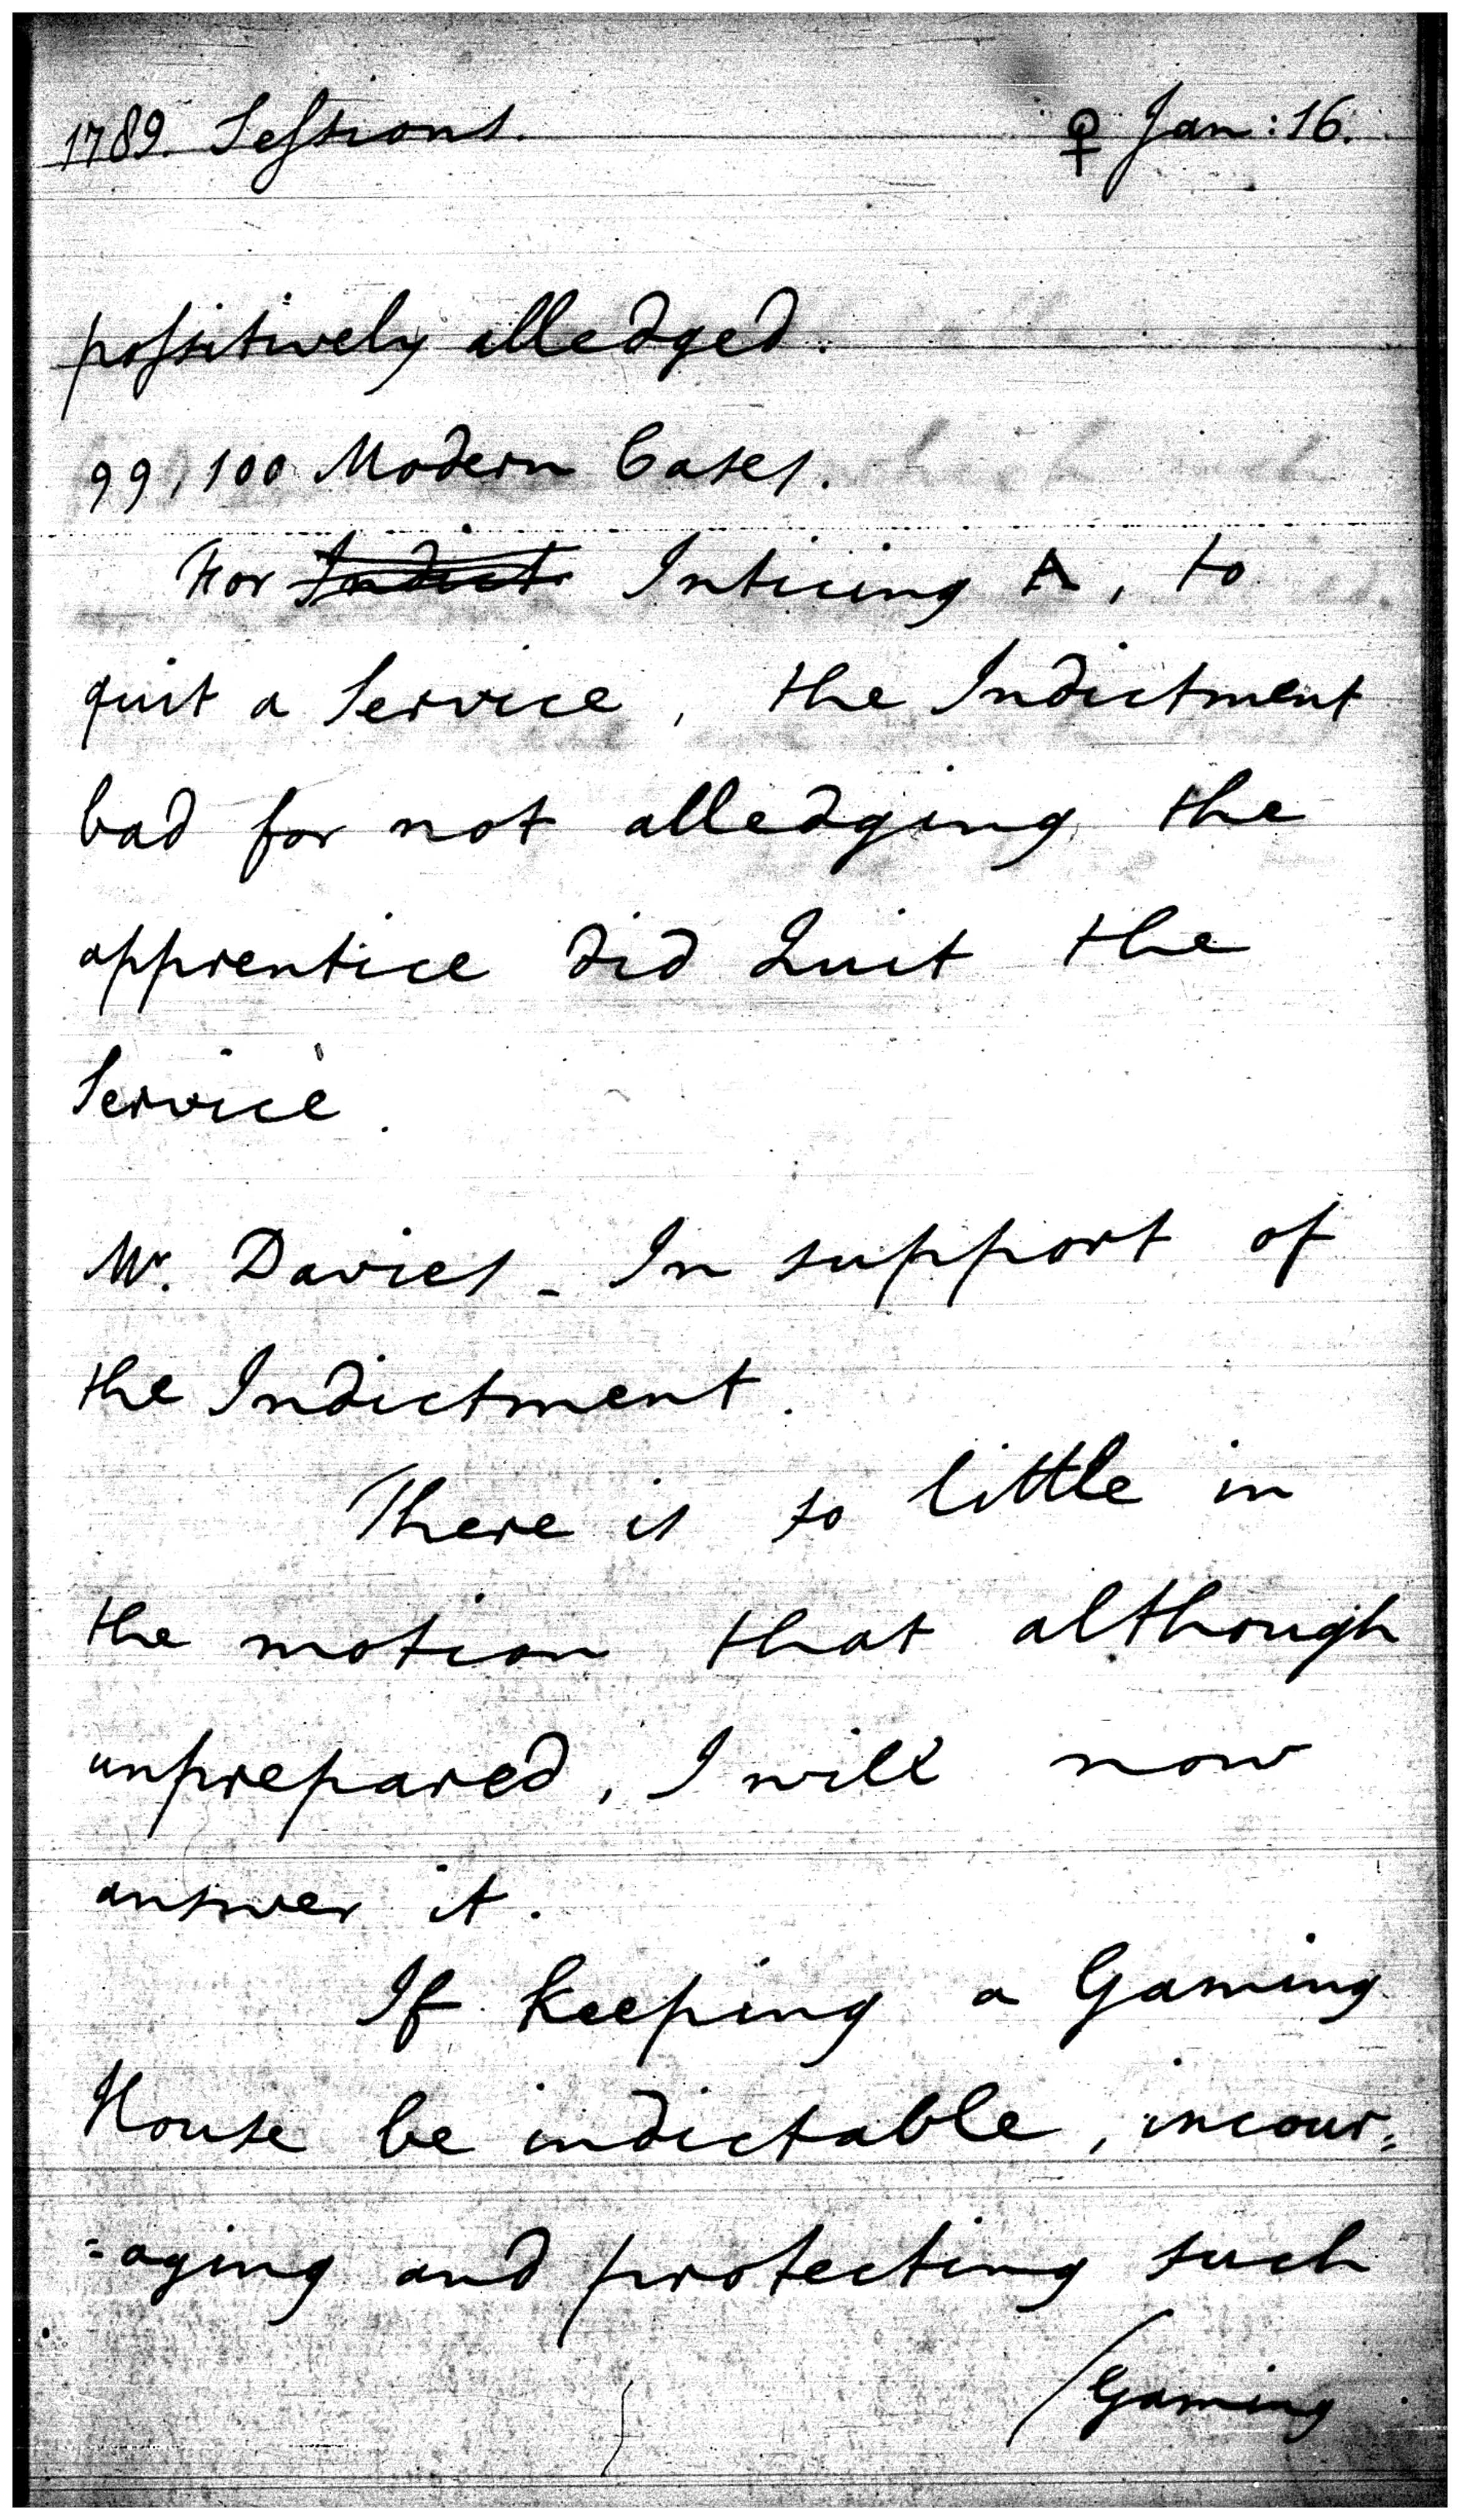 1789. Sessions. ♀ Jan: 16.
possitively alledged.
99, 100 Modern Cases.
For Indict. Inticing A, to
quit a Service, the Indictment
bad for not alledging the
apprentice did Quit the
Service.
Mr. Davies - In support of
the Indictment.
There is so little in
the motion that although
unprepared, I will now
answer it.
If keeping a Gaming
House be indictable, incour=
=aging and protecting such
/Gaming